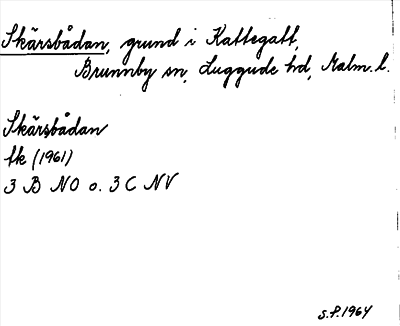 Skärsbådan, grund i Kattegatt,
Brunnby sn, Luggude hd, Malm. l.
Skärsbådan
Ek (1961)
3 B NO o. 3 C NV
S.P. 1964